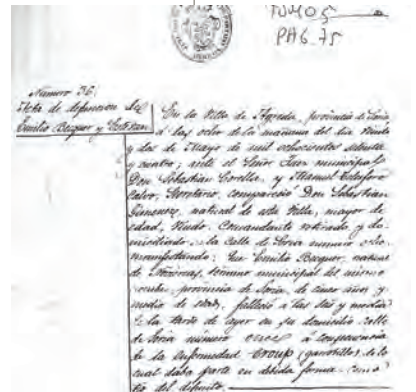 TOMO 5
PAG. 75
Numero 36.
Acta de defuncion de
Emilio Becquer y Esteban
En la Villa de Agreda, provincia de Soria
á las ocho de la mañana del dia Veinte
y dos de Mayo de mil ochocientos setenta
y cuatro; ante el Señor Juez municipal
Don Sebastian Corilla, y Manuel Telesforo
Calvo, Secretario, compareció Don Sebastian
Gimenez, natural de esta Villa, mayor de
edad, Viudo, Comandante retirado y do-
miciliado en la calle de Soria numero ocho
manifestando: Que Emilio Becquer, natural
de Noviercas, termino municipal del mismo
nombre, provincia de Soria, de cinco años y
medio de edad, falleció a las seis y media
de la tarde de ayer en su domicilio calle
de Soria numero once á consecuencia
de la enfermedad Croup (garrotillo) de lo
cual daba parte en debida forma como
del difunto.